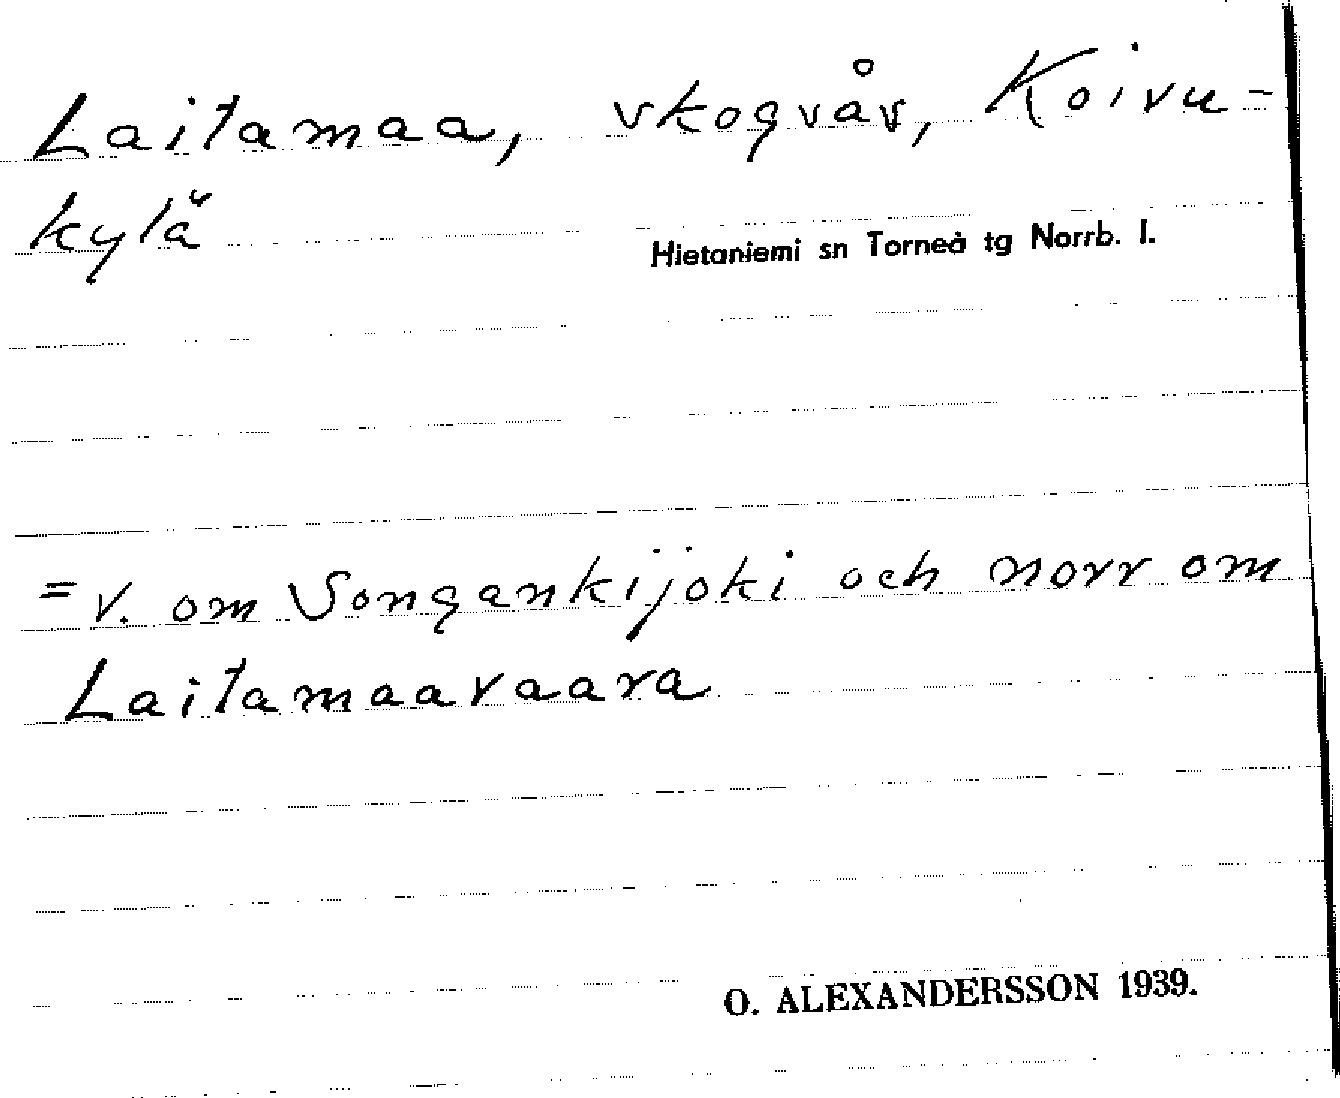 Laitamaa, skogsås, Koivu-
kylä
Hietaniemi sn Torneå tg Norrb. l.
= v. om Songankijoki och norr om
Laitamaavaara
O. ALEXANDERSSON 1939.